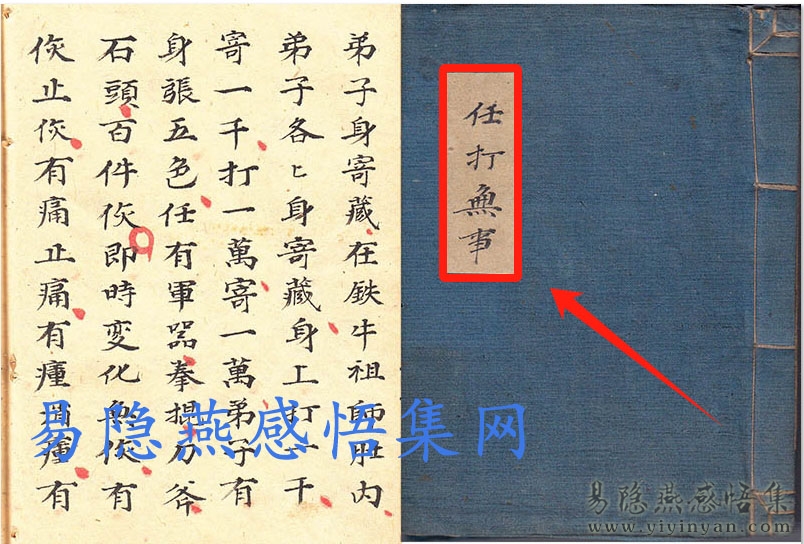 弟子身寄藏在鉄牛祖師肚内
弟子各〻身寄藏身上打一千
寄一千打一萬寄一萬弟子有
身張五色任有軍噐拳棍刀斧
石頭百件即時变化無有
止有痛止痛有瘇消瘇有
任打無事
易隐燕感悟集网
易隐燕感悟集
www.yiyinyan.com